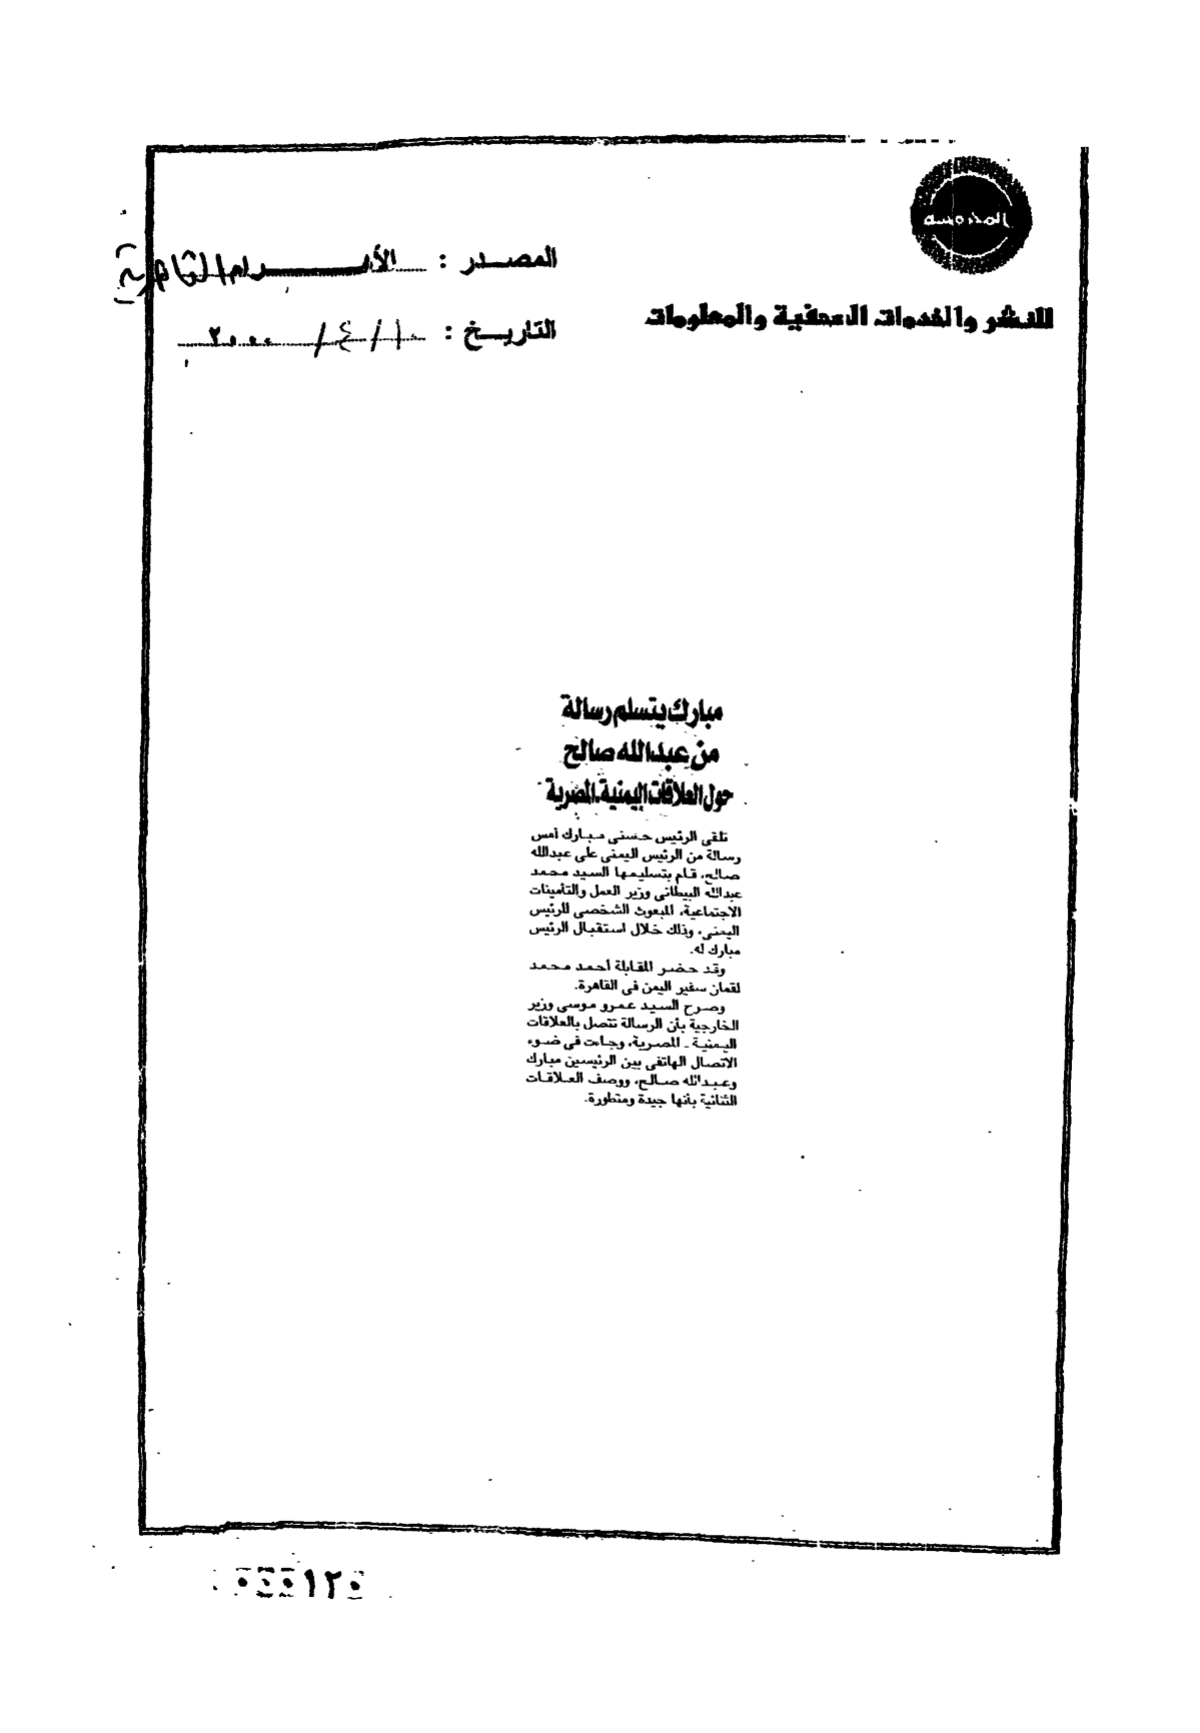 المحروسة
للنشر والخدمات الصحفية والمعلومات
المصدر : الأهرام القاهرية
التاريخ : ١٠/٤/٢٠٠٠
مبارك يتسلم رسالة
من عبدالله صالح
حول العلاقات اليمنية ـ المصرية
تلقى الرئيس حسنى مبارك أمس
رسالة من الرئيس اليمنى على عبدالله
صالح، قام بتسليمها السيد محمد
عبدالله البيطانى وزير العمل والتأمينات
الاجتماعية، المبعوث الشخصى للرئيس
اليمنى، وذلك خلال استقبال الرئيس
مبارك له.
وقد حضر المقابلة أحمد محمد
لقمان سفير اليمن فى القاهرة.
وصرح السيد عمرو موسى وزير
الخارجية بأن الرسالة تتصل بالعلاقات
اليمنية ـ المصرية، وجاءت فى ضوء
الاتصال الهاتفى بين الرئيسين مبارك
وعبدالله صالح، ووصف العلاقات
الثنائية بأنها جيدة ومتطورة.